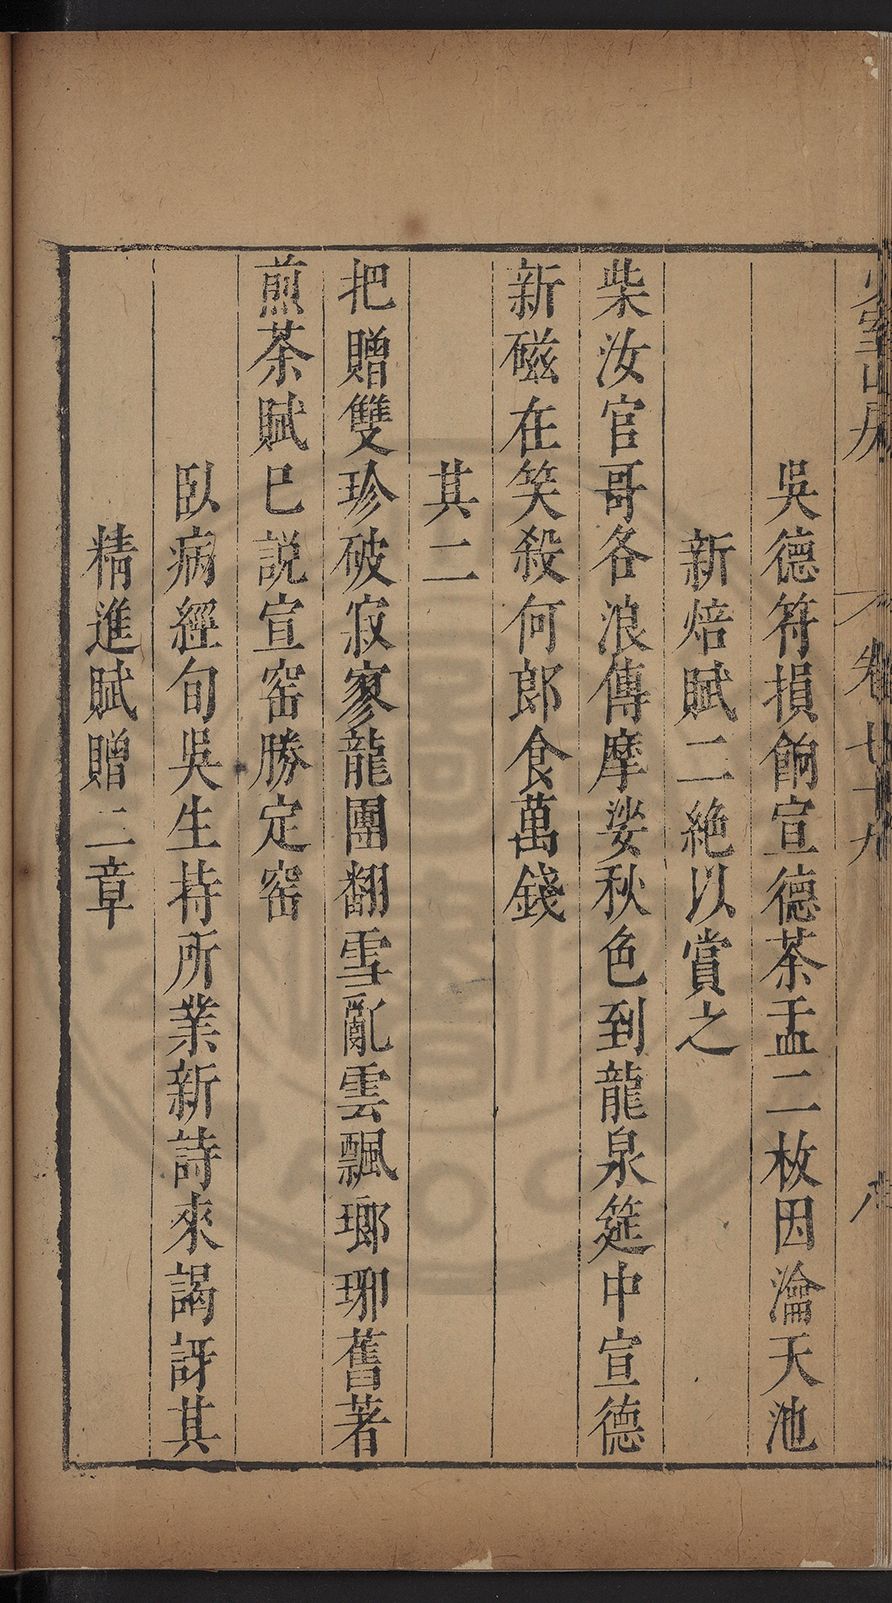 室山房 卷廿九 八
吳德符損餉宣德茶盂二枚因瀹天池
新焙賦二絶以賞之
柴汝官哥各浪傳摩娑秋色到龍泉筵中宣德
新磁在笑殺何郎食萬錢
其二
把贈雙珍破寂寥龍團翻雪亂雲飄瑯琊舊著
煎茶賦巳説宣窑勝定窑
臥病經旬吳生持所業新詩來謁訝其
精進賦贈二章